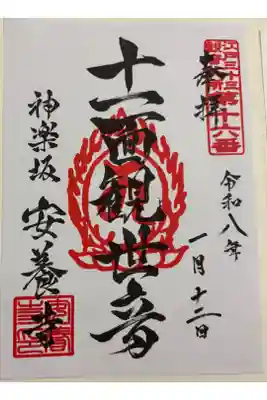 江戸三十三観音札所第十六番
奉拝
令和八年
一月十二日
十一面観世音
神楽坂
安養寺